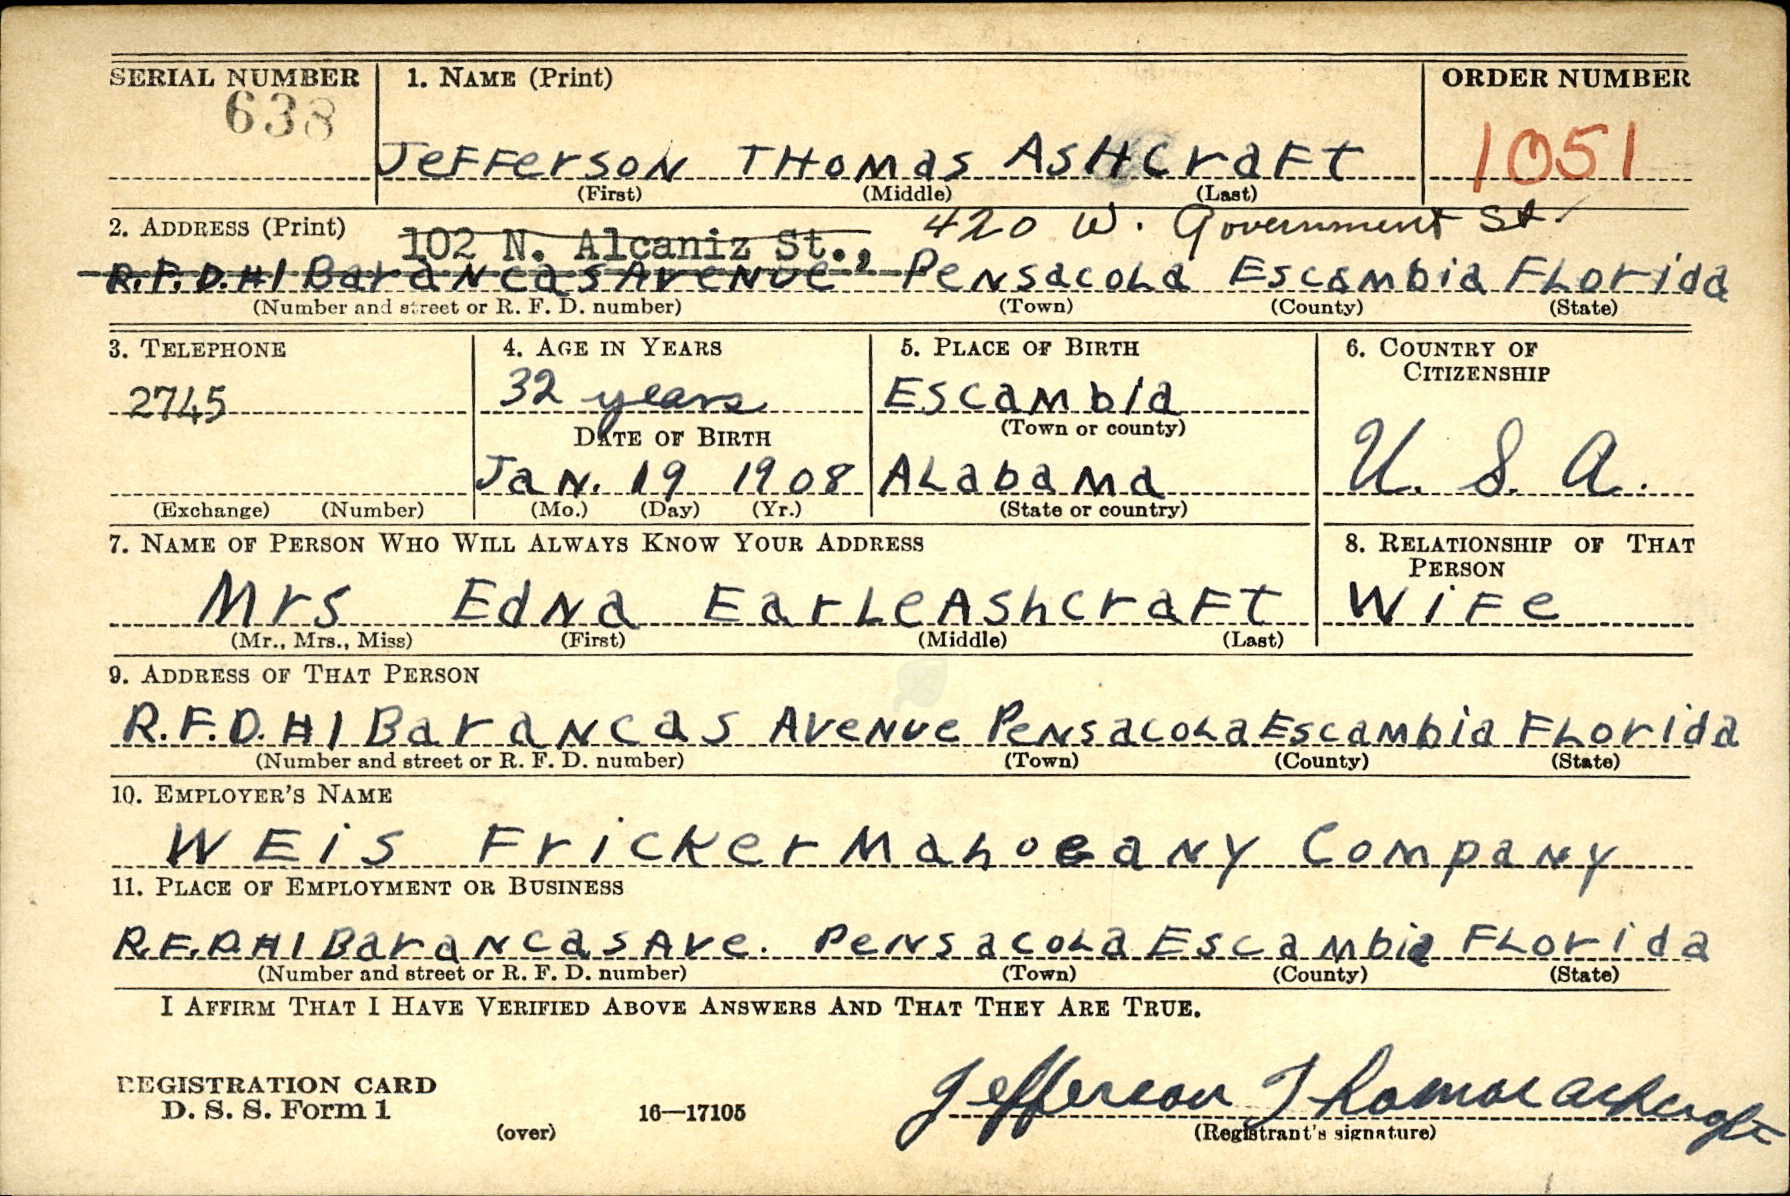 SERIAL NUMBER 1. NAME (Print) ORDER NUMBER
638
Jefferson Thomas Ashcraft 1051
(First) (Middle) (Last)
2. ADDRESS (Print) 102 N. Alcaniz St., 420 W. Government St.
R.F.D.#1 Barancas Avenue Pensacola Escambia Florida
(Number and street or R. F. D. number) (Town) (County) (State)
3. TELEPHONE 4. AGE IN YEARS 5. PLACE OF BIRTH 6. COUNTRY OF CITIZENSHIP
2745 32 years Escambia
DATE OF BIRTH (Town or county)
Jan. 19 1908 Alabama U. S. A.
(Exchange) (Number) (Mo.) (Day) (Yr.) (State or country)
7. NAME OF PERSON WHO WILL ALWAYS KNOW YOUR ADDRESS 8. RELATIONSHIP OF THAT PERSON
Mrs Edna Earle Ashcraft Wife
(Mr., Mrs., Miss) (First) (Middle) (Last)
9. ADDRESS OF THAT PERSON
R.F.D.#1 Barancas Avenue Pensacola Escambia Florida
(Number and street or R. F. D. number) (Town) (County) (State)
10. EMPLOYER'S NAME
Weis Fricker Mahogany Company
11. PLACE OF EMPLOYMENT OR BUSINESS
R.F.D.#1 Barancas Ave. Pensacola Escambia Florida
(Number and street or R. F. D. number) (Town) (County) (State)
I AFFIRM THAT I HAVE VERIFIED ABOVE ANSWERS AND THAT THEY ARE TRUE.
REGISTRATION CARD
D. S. S. Form 1 16—17105 Jefferson Thomas Ashcraft
(over) (Registrant's signature)